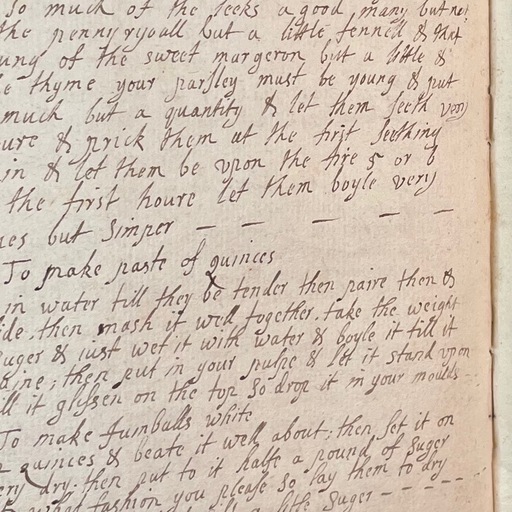 so much of the leeks a good many but not
the pennyryoall but a little fennell & that
ung of the sweet margeron but a little &
e thyme your parsley must be young & put
much but a quantity & let them seeth very
ure & prick them at the first seething
in & let them be vpon the fire 5 or 6
the first houre let them boyle very
es but Simper
To make paste of quinces
in water till they be tender then paire then &
ide. then mash it well together. take the weight
suger & iust wet it with water & boyle it till it
; then put in your pulpe & let it stand vpon
ill it glysen on the top so drop it in your moulds
To make Jumballs white
quinces & beate it well about; then set it on
ery dry. then put to it halfe a pound of suger
what fashion you please so lay them to dry
a litle suger